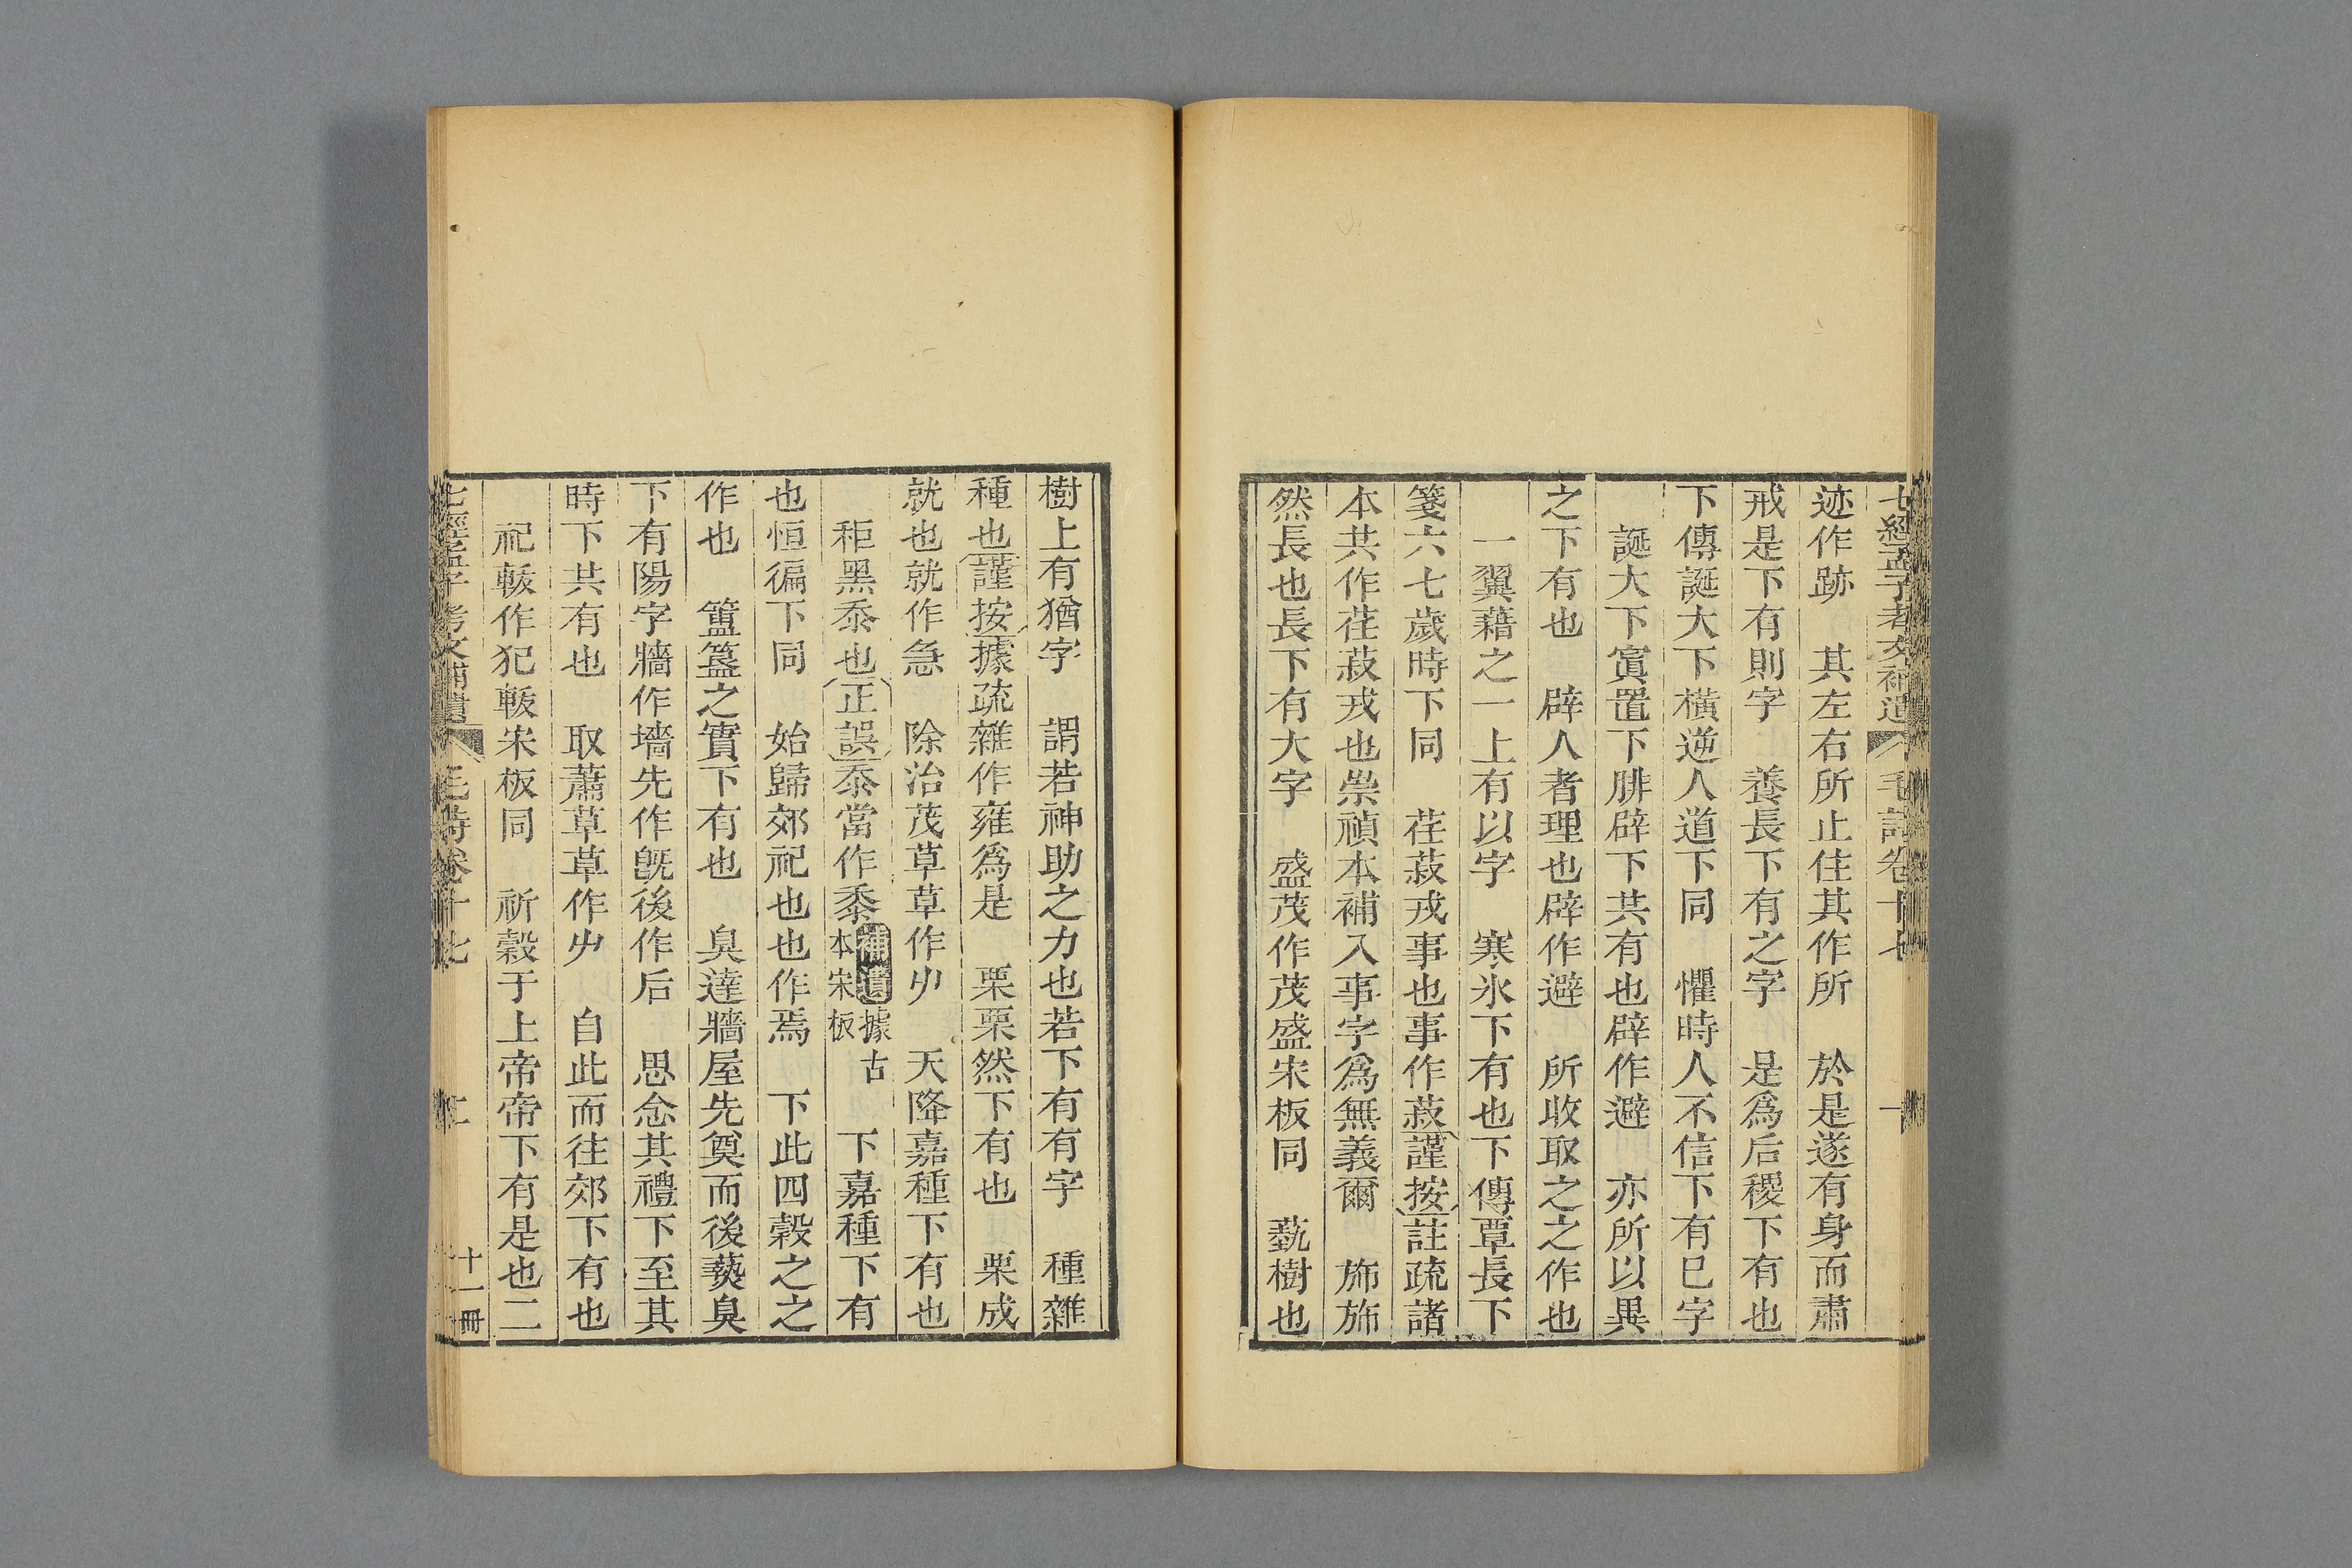 七經孟子考文補遺 毛詩卷十七 一
迹作跡　其左右所止住其作所　於是遂有身而肅
戒是下有則字　養長下有之字　是爲后稷下有也
下傳誕大下橫逆人道下同　懼時人不信下有已字
誕大下寘置下腓辟下共有也辟作避　亦所以異
之下有也　辟人者理也辟作避　所收取之之作也
一翼藉之一上有以字　寒氷下有也下傳覃長下
箋六七歲時下同　荏菽戎事也事作菽謹按註疏諸
本共作荏菽戎也崇禎本補入事字爲無義爾　斾斾
然長也長下有大字　盛茂作茂盛宋板同　蓺樹也
樹上有猶字　謂若神助之力也若下有有字　種雜
種也謹按據疏雜作雍爲是　栗栗然下有也　栗成
就也就作急　除治茂草草作屮　天降嘉種下有也
秬黑黍也正誤黍當作黍補遺據古本宋板　下嘉種下有
也恒徧下同　始歸郊祀也也作焉　下此四穀之之
作也　簠簋之實下有也　臭達牆屋先奠而後爇臭
下有陽字牆作墻先作旣後作后　思念其禮下至其
時下共有也　取蕭草草作屮　自此而往郊下有也
祀軷作犯軷宋板同　祈穀于上帝帝下有是也二
七經孟子考文補遺 毛詩卷十七 二 十一冊